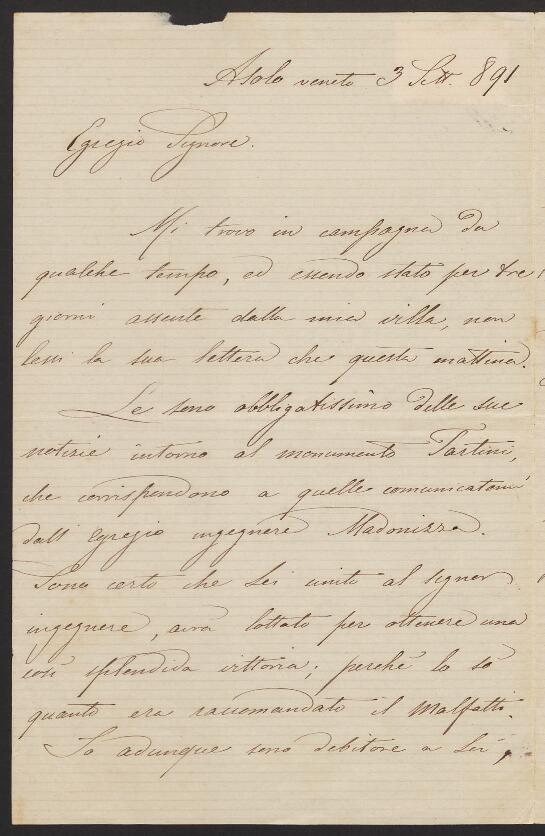 Asolo veneto 3 Sett. 891
Egregio Signore.
Mi trovo in campagna da
qualche tempo, ed essendo stato per tre
giorni assente dalla mia villa, non
lessi la sua lettera che questa mattina.
Le sono obbligatissimo delle sue
notizie intorno al monumento Tartini,
che corrispondono a quelle comunicatomi
dall' Egregio ingegnere Madonizza.
Sono certo che Lei unito al signor
ingegnere, avrà lottato per ottenere una
così splendida vittoria; perchè lo sò
quanto era raccomandato il Malfatti.
Io adunque sono debitore a Lei,